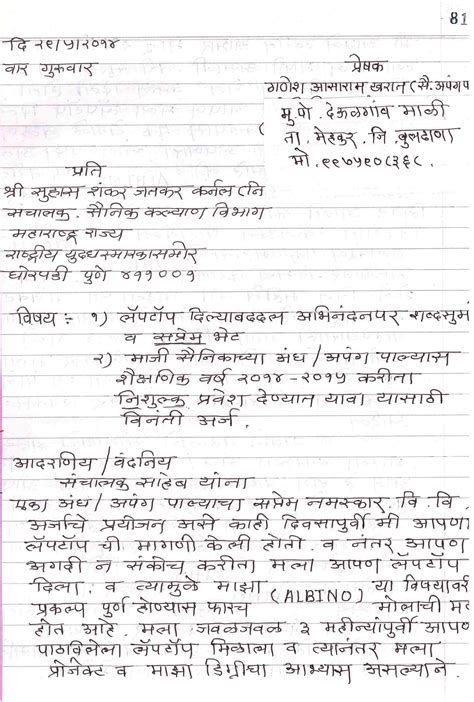 81
दि २९/५/२०१४
वार गुरुवार
प्रेषक
गणेश आसाराम खरात (से. अपंग प
मु.पो. देऊळगांव माळी
ता. मेहकर, जि. बुलढाणा
मो.
प्रति
श्री सुहास शंकर जतकर कर्नल (नि
संचालक, सैनिक कल्याण विभाग
महाराष्ट्र राज्य
राष्ट्रीय युध्दस्मारकासमोर
घोरपडी पुणे ४११००१
विषय :- १) लॅपटॉप दिल्याबद्दल अभिनंदनपर शब्दसुम
व सप्रेम भेट
२) माजी सैनिकाच्या अंध / अपंग पाल्यास
शैक्षणिक वर्ष २०१४-२०१५ करीता
निशुल्क प्रवेश देण्यात यावा यासाठी
विनंती अर्ज.
आदरणिय / वंदनिय
संचालक साहेब यांना
एका अंध / अपंग पाल्याचा सप्रेम नमस्कार. वि. वि.
अर्जाचे प्रयोजन असे काही दिवसापुर्वी मी आपणा
लॅपटॉप ची मागणी केली होती. व नंतर आपण
अगदी न संकोच करीता मला आपण लॅपटॉप
दिला. व त्यामुळे माझा (ALBINO) या विषयावर
प्रकल्प पुर्ण होण्यास फारच मोलाची मद
होत आहे. मला जवळजवळ ३ महीन्यांपुर्वी आपण
पाठविलेला लॅपटॉप मिळाला व त्यानंतर मला
प्रोजेक्ट व माझा डिग्रीचा आभ्यास असल्याने.